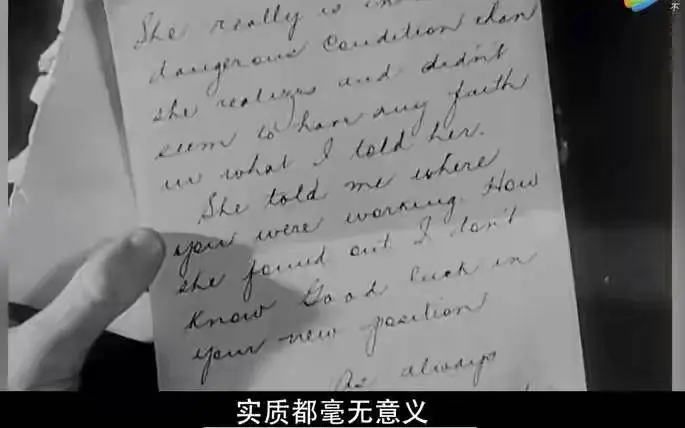 She really is in
dangerous condition than
she realizes and didn't
seem to have any faith
in what I told her.
She told me where
you were working. How
she found out I don't
know Good luck in
your new position
As always
实质都毫无意义
不